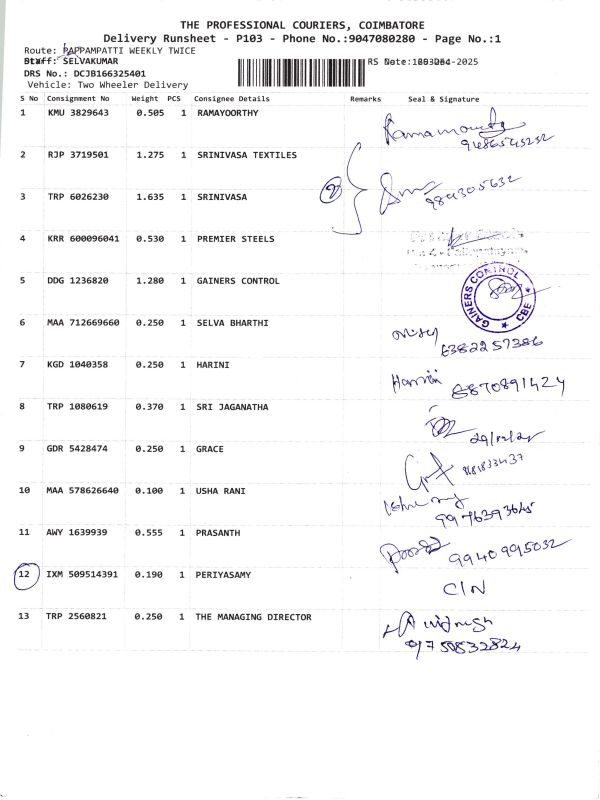 THE PROFESSIONAL COURIERS, COIMBATORE
Delivery Runsheet - P103 - Phone No.:9047080280 - Page No.:1
Route: PAPPAMPATTI WEEKLY TWICE
Staff: SELVAKUMAR
DRS No.: DCJB166325401
Vehicle: Two Wheeler Delivery
S No Consignment No Weight PCS Consignee Details Remarks Seal & Signature
1 KMU 3829643 0.505 1 RAMAYOORTHY
Ramamoorthy
2 RJP 3719501 1.275 1 SRINIVASA TEXTILES
3 TRP 6026230 1.635 1 SRINIVASA
2
4 KRR 600096041 0.530 1 PREMIER STEELS
5 DDG 1236820 1.280 1 GAINERS CONTROL
GAINERS CONTROL CBE
6 MAA 712669660 0.250 1 SELVA BHARTHI
6382257386
7 KGD 1040358 0.250 1 HARINI
Harini 8870891424
8 TRP 1080619 0.370 1 SRI JAGANATHA
9 GDR 5428474 0.250 1 GRACE
10 MAA 578626640 0.100 1 USHA RANI
9976393645
11 AWY 1639939 0.555 1 PRASANTH
9940995032
12 IXM 509514391 0.190 1 PERIYASAMY
C/N
13 TRP 2560821 0.250 1 THE MANAGING DIRECTOR
9750832824